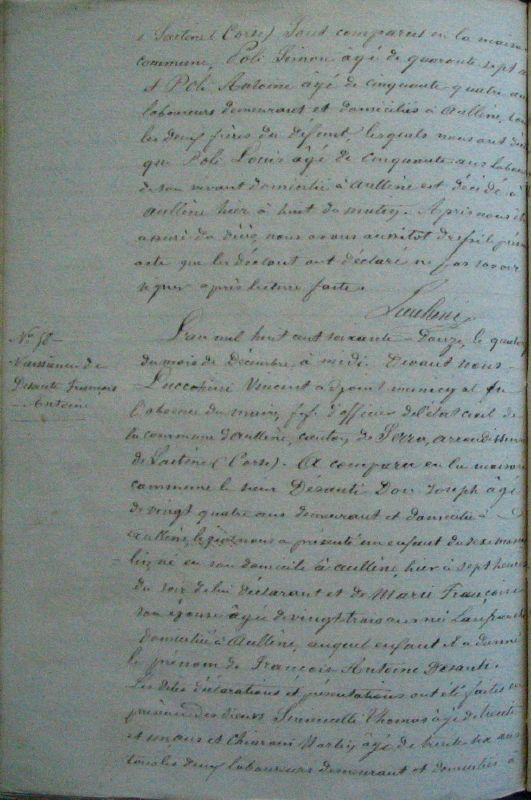 Sartène (Corse) sont comparus en la maison
commune, Poli Simon âgé de quarante sept
et Poli Antoine âgé de cinquante quatre ans
laboureurs demeurant et domiciliés à Aullène, tous
les deux frères du défunt, lesquels nous ont dit
que Poli Louis âgé de cinquante ans laboureur
de son vivant domicilié à Aullène est décédé à
Aullène hier à huit du matin. Après nous être
assuré du décès, nous avons aussitôt dressé le présent
acte que les déclarant ont déclaré ne pas savoir
signer après lecture faite.
Nº 58
Naissance de
Désanti François
Antoine
L'an mil huit cent soixante douze, le quatorze
du mois de Décembre à midi. Devant nous
Lucchini Vincent adjoint municipal en
l'absence du maire, f.f. d'officier de l'état civil de
la commune d'Aullène, canton de Serra, arrondissement
de Sartène (Corse). A comparu en la maison
commune le sieur Désanti Don Joseph âgé
de vingt quatre ans demeurant et domicilié à
Aullène, lequel nous a présenté un enfant du sexe mascu
lin, né en son domicile à Aullène hier à sept heures
du soir de lui déclarant et de Marie Françoise
son épouse âgée de vingt trois ans née Lanfranchi
domiciliée à Aullène, auquel enfant il a donné
le prénom de François Antoine Désanti.
Les dites déclarations et présentations ont été faites en
présence des sieurs Thomas âgé de trente
et un ans et Chiarani Martin âgé de trente six ans
tous les deux laboureurs demeurant et domiciliés à